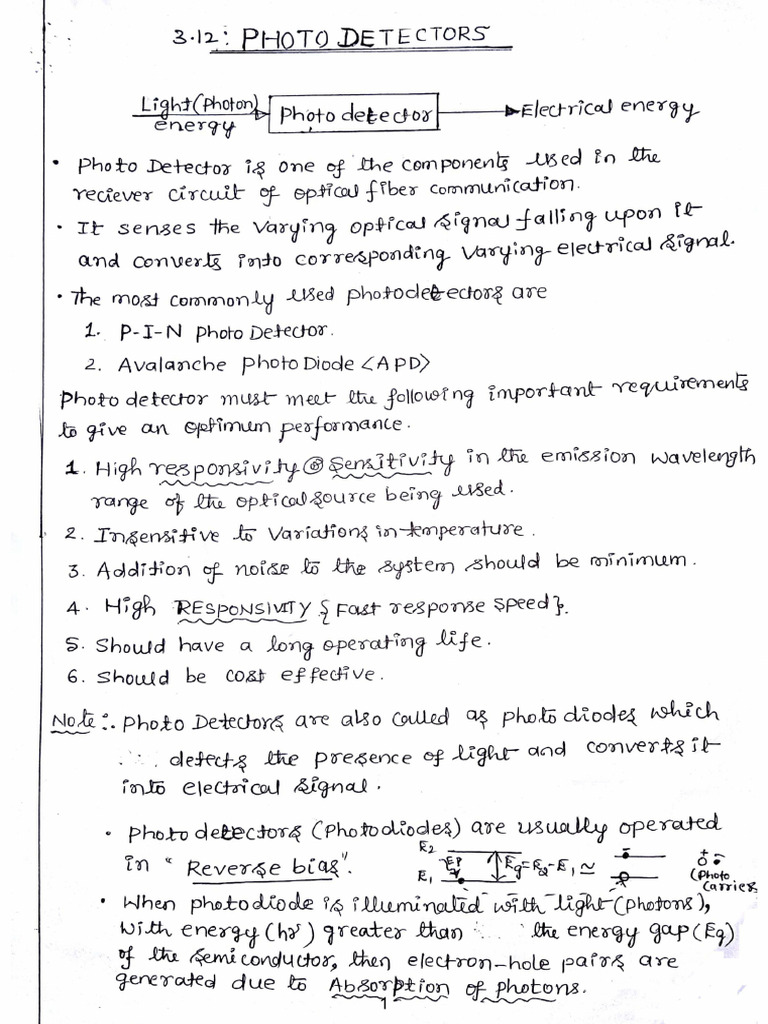 3.12: PHOTO DETECTORS
Light(Photon) energy
Photo detector
Electrical energy
• Photo Detector is one of the components used in the
reciever circuit of optical fiber communication.
• It senses the varying optical signal falling upon it
and converts into corresponding varying electrical signal.
• The most commonly used photodetectors are
1. P-I-N Photo Detector.
2. Avalanche Photo Diode <APD>
Photo detector must meet the following important requirements
to give an optimum performance.
1. High responsivity @ Sensitivity in the emission wavelength
range of the optical source being used.
2. Insensitive to variations in temperature.
3. Addition of noise to the system should be minimum.
4. High RESPONSIVITY {Fast response speed}.
5. Should have a long operating life.
6. Should be cost effective.
Note:. Photo Detectors are also called as photo diodes which
detects the presence of light and converts it
into electrical signal.
• Photo detectors (Photodiodes) are usually operated
in "Reverse bias".
E2
E1
EP
Eg=E2-E1 ≃
(Photo
Carrier
• When photodiode is illuminated with light (photons),
with energy (hν) greater than the energy gap (Eg)
of the semiconductor, then electron-hole pairs are
generated due to Absorption of photons.
1